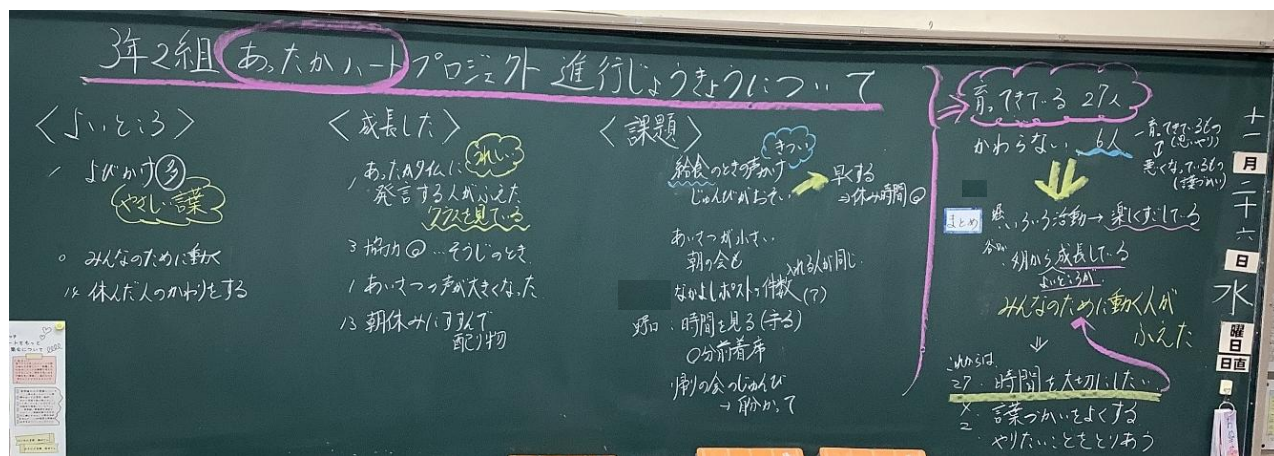 3年2組 あったかハートプロジェクト 進行じょうきょうについて
<よいところ>
よびかけ 多
やさしい言葉
0 みんなのために動く
14 休んだ人のかわりをする
<成長した>
うれしい
1 あったかタイムに
発言する人がふえた
クラスを見ている
3 協力◎…そうじのとき
1 あいさつの声が大きくなった
13 朝休みにすすんで
配り物
<課題>
きつい
給食のときの声かけ
じゅんびがおそい
早くする
⇒休み時間◎
あいさつが小さい
朝の会も
入れる人が同じ
なかよしポストの件数(?)
時間を見る(守る)
〇分前着席
帰りの会のじゅんび
育ってきている 27人
かわらない 6人
育ってきているもの
(思いやり)
悪くなっているもの
(言葉づかい)
まとめ
いろいろ活動→楽しくすごしている
4月から成長している
よいところが
みんなのために動く人が
ふえた
これからは
27 時間を大切にしたい
4 言葉づかいをよくする
2 やりたいことをとりあう
十一
月
二十六
日
水
曜日
日直